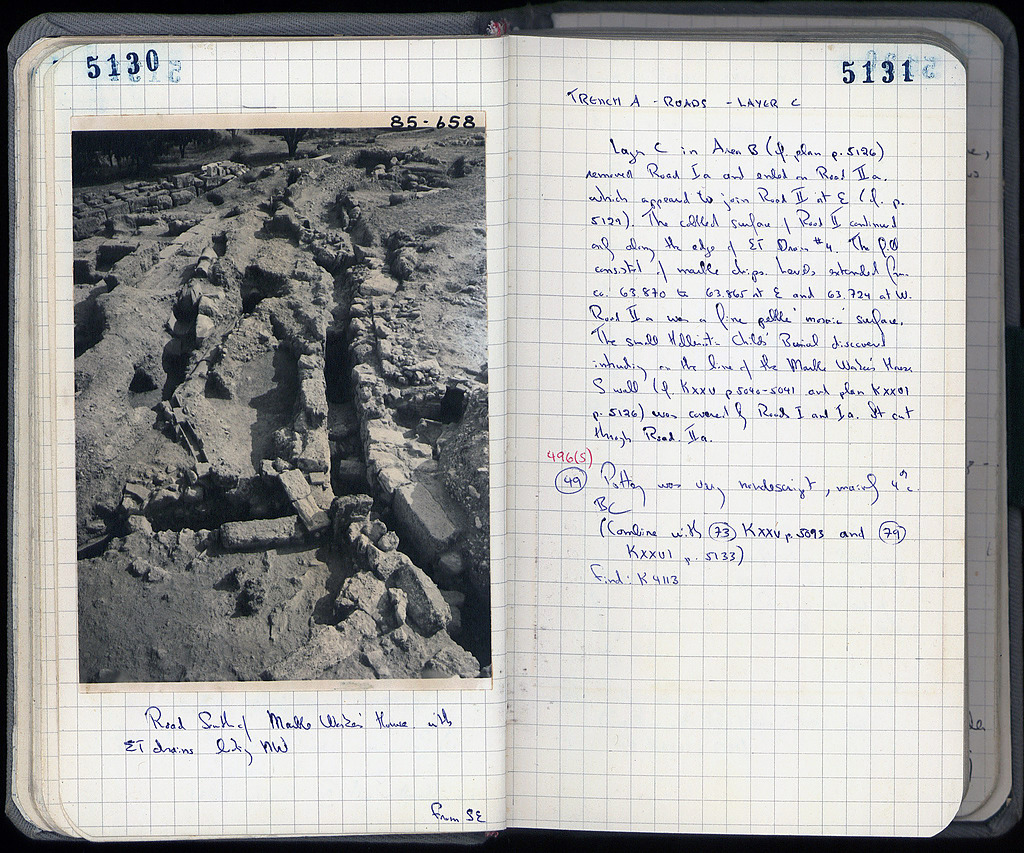 5130
85-658
Road South of Marble Worker's House with
ET drains looking NW
From SE
5131
TRENCH A - ROADS - LAYER C
Layer C in Area B (cf. plan p. 5126)
removed Road Ia and ended on Road IIa.
which appeared to join Road II at E (cf. p.
5129). The cobbled surface of Road II continued
only along the edge of ET Drain #4. The
consisted of marble chips. Levels extended from
ca. 63.870 to 63.865 at E and 63.724 at W.
Road IIa was a fine pebble 'mosaic' surface.
The small Hellenistic Childs' Burial discovered
intruding on the line of the Marble Worker's House
S wall (cf. KXXV p 5040-5041 and plan KXXVI
p. 5126) was covered by Roads I and Ia. It cut
through Road IIa.
496(S)
49 Pottery was very nondescript, mainly 4th c.
BC
(Combine with 73 KXXV p. 5093 and 79
KXXVI p. 5133)
Find: K 4113